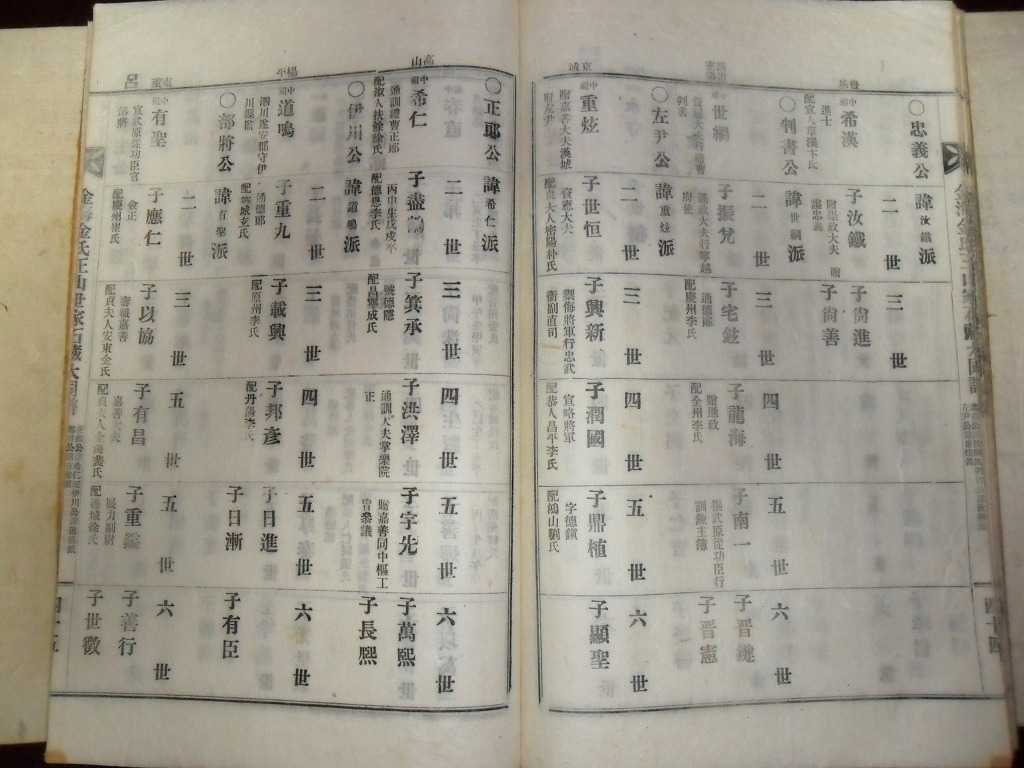 ○忠義公
諱汝鐵派
二世
三世
中祖希漢
進士
配宜人草漢卞氏
子汝鐵
贈崇政大夫
贈諡忠義
子尙進
子尙善
○判書公
諱世綱派
二世
三世
四世
五世
六世
中祖世綱
判書
子振
通政大夫行寧越府使
子宅
通德郎
配慶州李氏
子龍海
贈通政
配全州李氏
子南一
振武原從功臣行訓鍊主簿
子晋
子晋憲
○左尹公
諱重炫派
二世
三世
四世
五世
六世
京城
中祖重炫
贈嘉善大夫漢城府左尹
子世恒
資憲大夫
配貞夫人密陽朴氏
子興新
禦侮將軍行忠武衛副直司
子潤國
宣略將軍
配恭人昌平李氏
子鼎植
字德鎭
配鴻山劉氏
子顯聖
○正郎公
諱希仁派
二世
三世
四世
五世
六世
高山
中祖希仁
通訓禮曹正郎
配淑人扶餘徐氏
子盡
配德恩李氏
子箕承
號德隱
配昌寧成氏
子洪澤
通訓大夫掌樂院正
子宇先
贈嘉善同中樞工曹參議
子萬熙
子長熙
○伊川公
諱道鳴派
二世
三世
四世
五世
六世
楊平
中祖道鳴
泗川遂安郡守伊川縣監
子重九
通德郎
配宣城玄氏
子載興
配原州李氏
子邦彥
配丹陽李氏
子日進
子日漸
子有臣
○部將公
諱有聖派
二世
三世
五世
五世
六世
中祖有聖
宣武原從功臣官部將
子應仁
僉正
配慶州崔氏
子以協
壽職嘉善
配貞夫人安東金氏
子有昌
嘉善大夫
配貞夫人金海裵氏
子重
展力副尉
配達城徐氏
子善行
子世徵